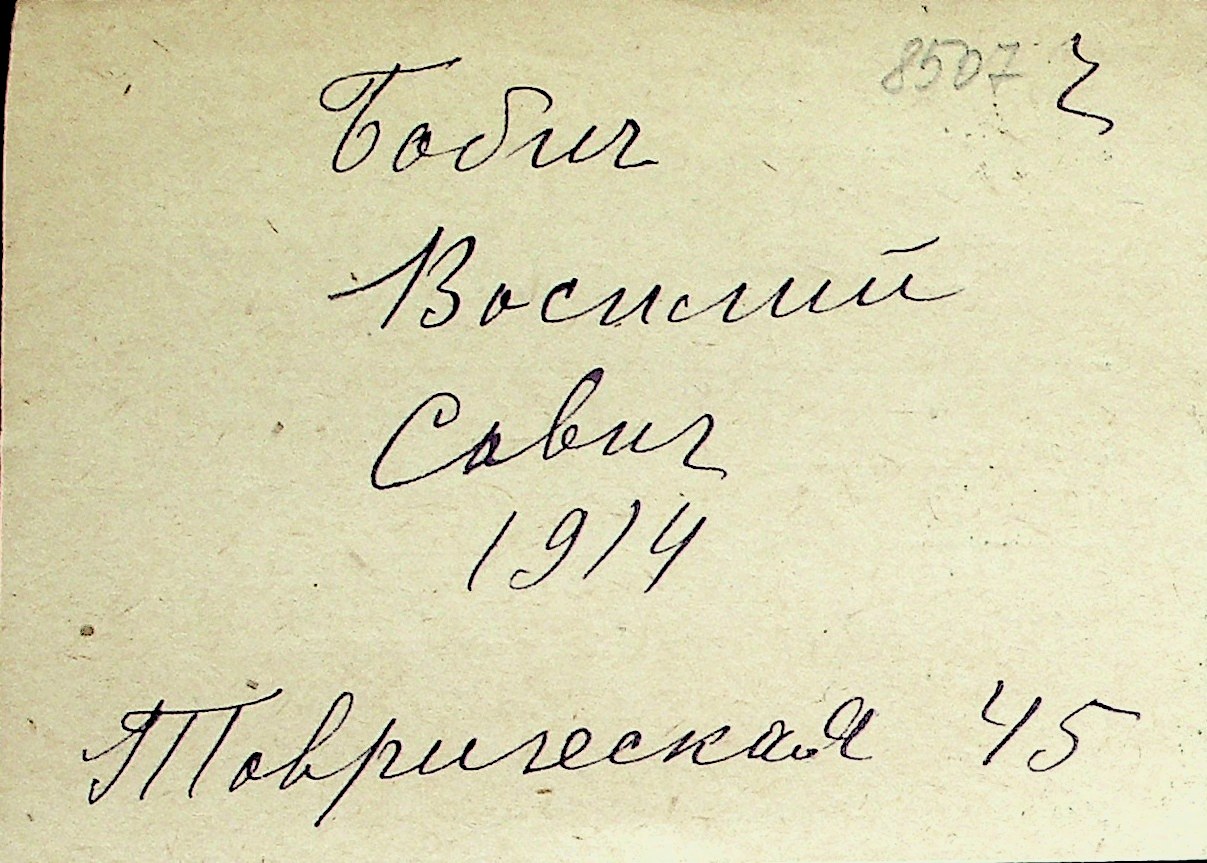 8507
Бабич
Василий
Савич
1914
Таврическая 45